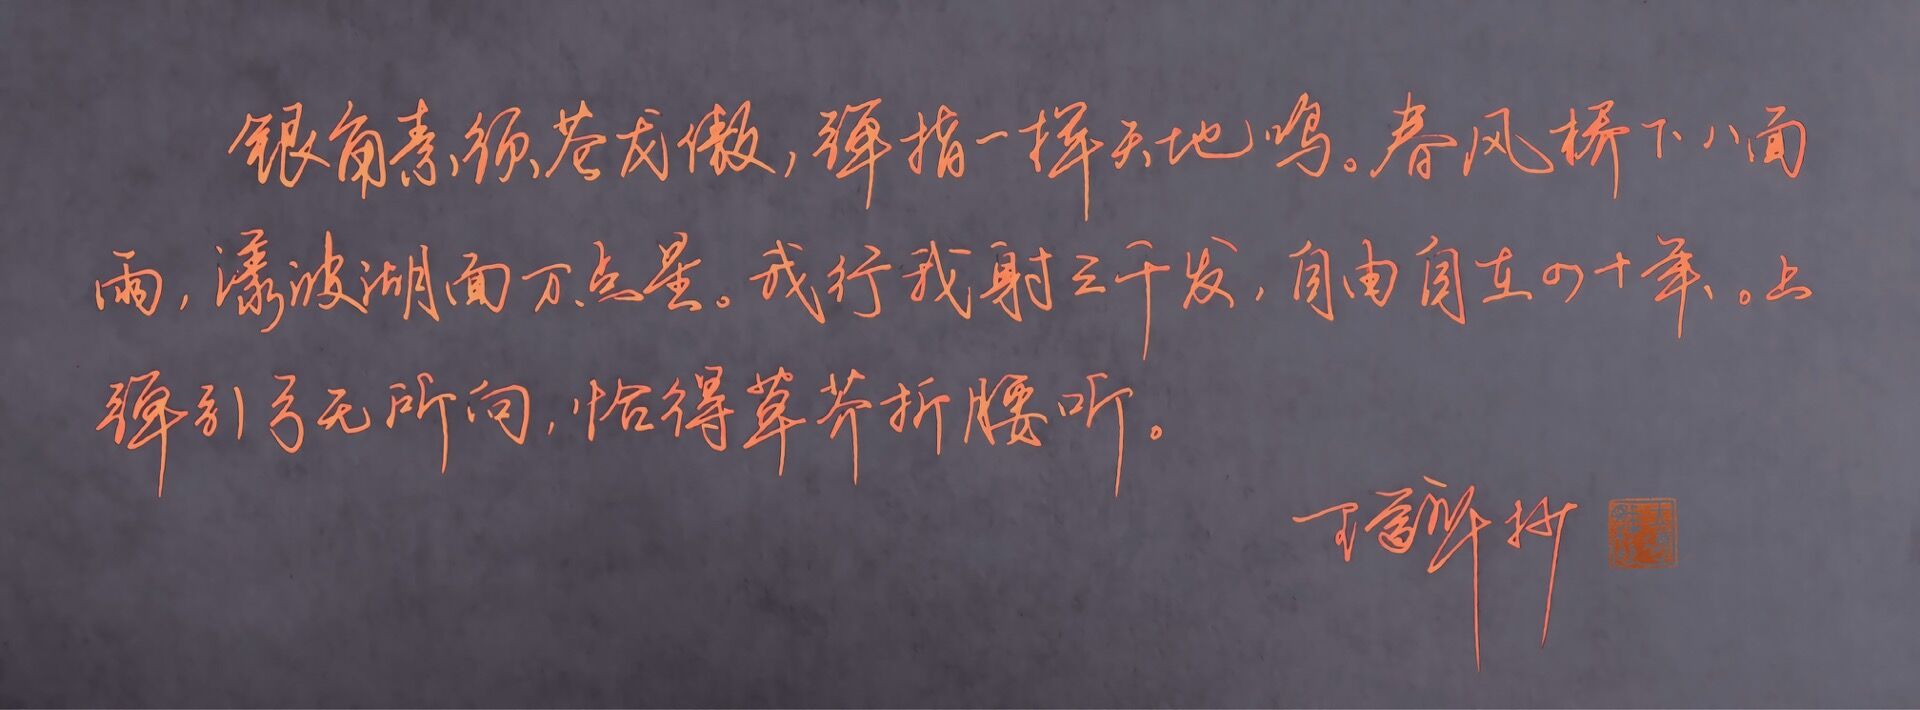 银角素须苍龙傲，弹指一挥天地鸣。春风桥下八面
雨，瀑波湖面万点星。我行我射三千发，自由自在四十年。上
弹引弓无所向，恰得草芥折腰听。
抄